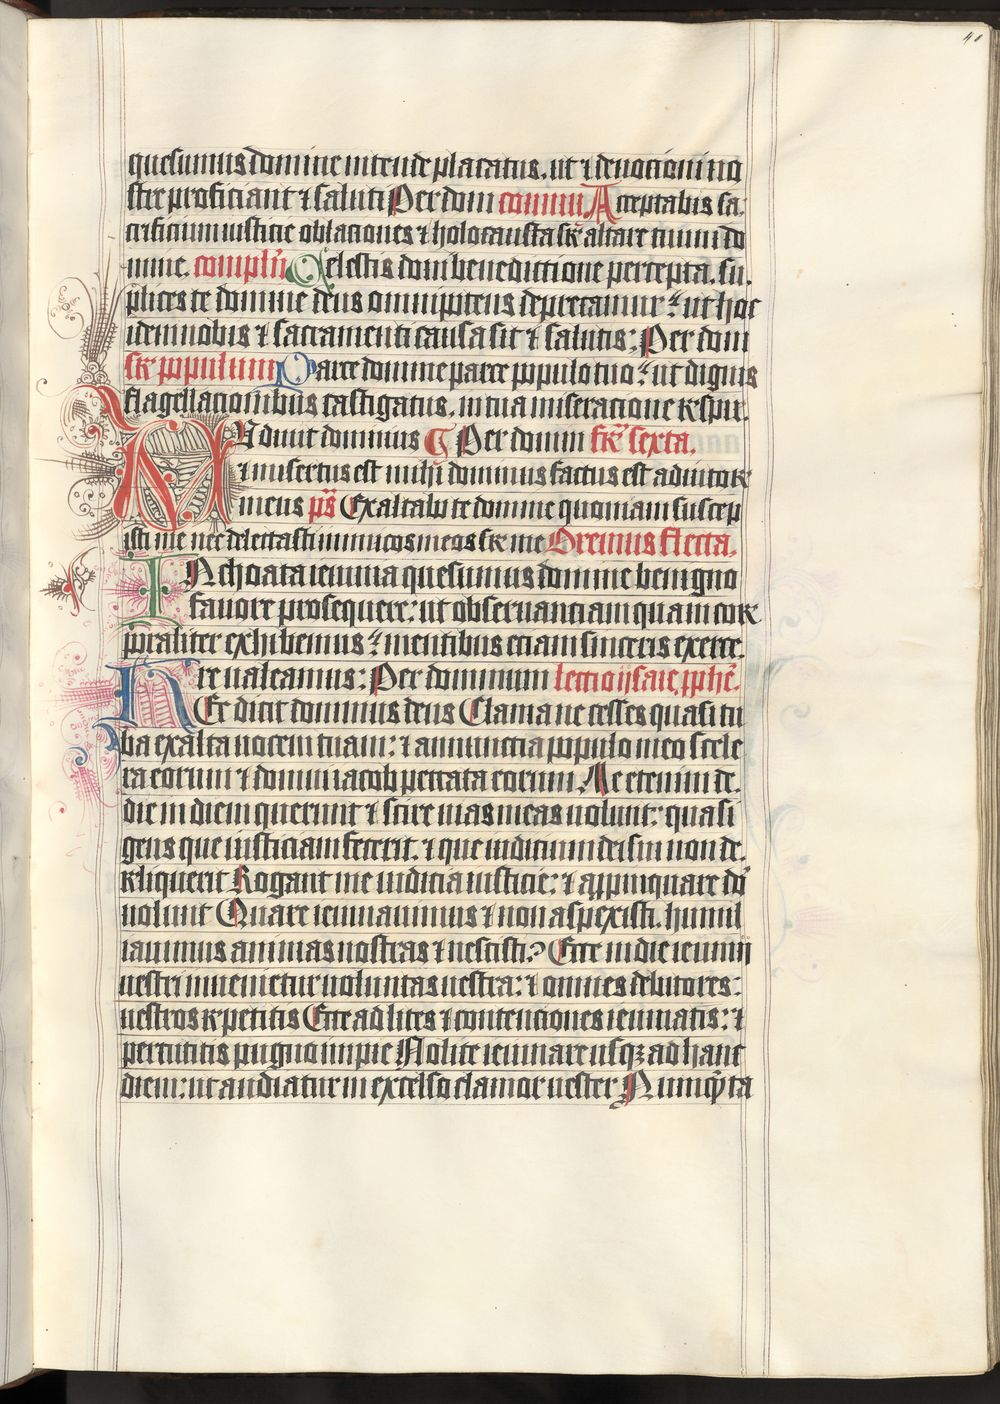 40
quesumus domine intende placatus. ut ⁊ deuocioni no
stre proficiant ⁊ saluti Per dom commu Acceptabis sa,
crificium iusticie oblaciones ⁊ holocausta sr altare tuum do
mine. compln̄ Celestis doni benedictione percepta. su,
plices te domine deus omnipotens deprecamur: ut hoc
idem nobis ⁊ sacramenti causa sit ⁊ salutis: Per dom
sr populum Parce domine parce populo tuo: ut dignis
flagellacionibus castigatus. in tua miseracione respir.
Audiuit dominus G Per domin fr̄ sexta.
⁊ misertus est mihi dominus factus est adiutor
meus ps̄ Exaltabo te domine quoniam suscep
isti me nec delectasti inimicos meos sr me Oremus flecta.
INchoata ieiunia quesumus domine benigno
fauore prosequere: ut obseruanciam quam cor
poraliter exhibemus: mentibus eciam sinceris exerce.
re ualeamus: Per dominum lectio ysaie. pphē.
HEc dicit dominus deus Clama ne cesses quasi tu
ba exalta uocem tuam: ⁊ annuncia populo meo scele
ra eorum ⁊ domui iacob peccata eorum. Me etenim de.
die in diem querunt ⁊ scire uias meas uolunt: quasi
gens que iusticiam fecerit. ⁊ que iudicium dei sui non de.
reliquerit Rogant me iudicia iusticie: ⁊ appropinquare dō
uolunt Quare ieiunauimus ⁊ non aspexisti. humil
iauimus animas nostras ⁊ nescisti? Ecce in die ieiunij
uestri inuenietur uoluntas uestra: ⁊ omnes debitores:
uestros repetitis Ecce ad lites ⁊ contenciones ieiunatis: ⁊
percutitis pugno impie Nolite ieiunare usqꝫ ad hanc
diem: ut audiatur in excelso clamor uester Numqͥd ta